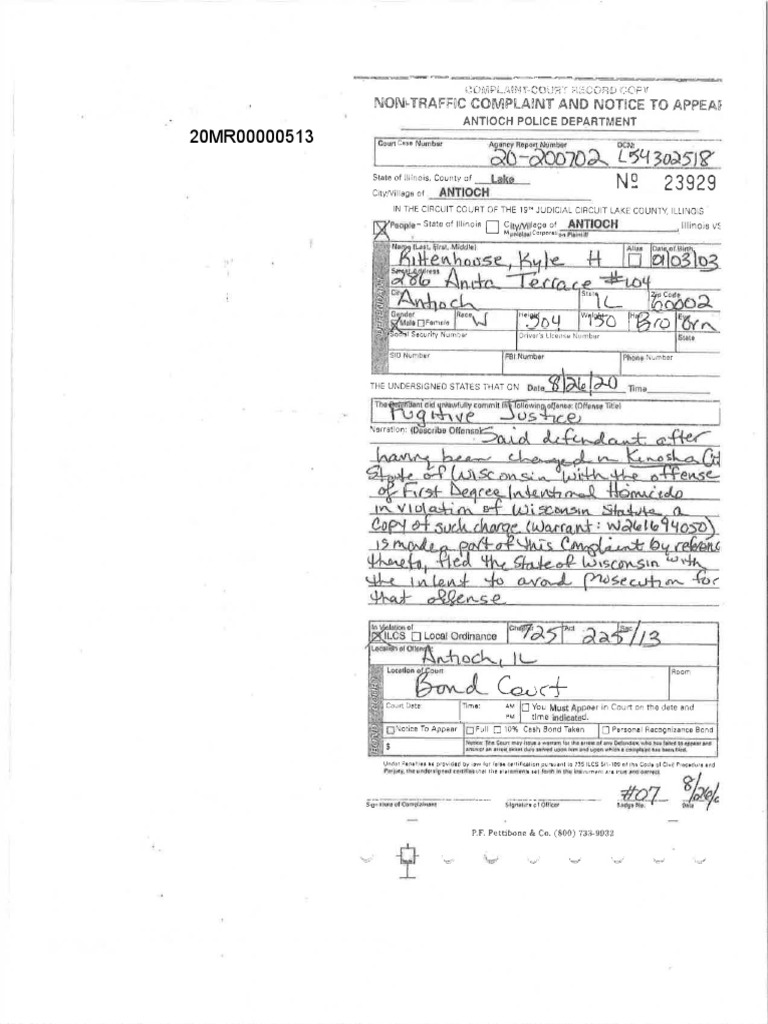 COMPLAINT-COURT RECORD COPY
NON-TRAFFIC COMPLAINT AND NOTICE TO APPEAR
ANTIOCH POLICE DEPARTMENT
20MR00000513
Court Case Number Agency Report Number DCN:
20-200702 L54302518
State of Illinois, County of Lake Nº 23929
City/Village of ANTIOCH
IN THE CIRCUIT COURT OF THE 19TH JUDICIAL CIRCUIT LAKE COUNTY, ILLINOIS
X People - State of Illinois City/Village of ANTIOCH Illinois VS
Municipal Corporation Plaintiff
Name (Last, First, Middle) Alias Date of Birth
Rittenhouse, Kyle H 01/03/03
Street Address
286 Anita Terrace #104
City State Zip Code
Antioch IL 60002
Gender Race Height Weight
X Male Female W 504 150 Bro Brn
Social Security Number Driver's License Number State
SID Number FBI Number Phone Number
THE UNDERSIGNED STATES THAT ON Date 8/26/20 Time
The defendant did unlawfully commit the following offense: (Offense Title)
Fugitive Justice
Narration: (Describe Offense) Said defendant after
having been charged in Kinosha
State of Wisconsin with the offense
of First Degree Intentional Homicide
in violation of Wisconsin Statute a
copy of such charge (Warrant: W261694050)
is made a part of this Complaint by
thereto, fled the State of Wisconsin with
the intent to avoid prosecution for
that offense
In Violation of Chapter Act Sec.
X ILCS Local Ordinance 725 225/13
Location of Offense
Antioch, IL
Location of Court Room
Bond Court
Court Date Time: AM You Must Appear in Court on the date and
PM time indicated.
Notice To Appear Full 10% Cash Bond Taken Personal Recognizance Bond
$ Notice: The Court may issue a warrant for the arrest of any Defendant who has failed to appear and
Under Penalties as provided by law for false certification pursuant to 735 ILCS 5/1-109 of the Code of Civil Procedure and
Perjury, the undersigned certifies that the statements set forth in the instrument are true and correct.
#07 8/26/
Signature of Complainant Signature of Officer Badge No. Date
P.F. Pettibone & Co. (800) 733-9932